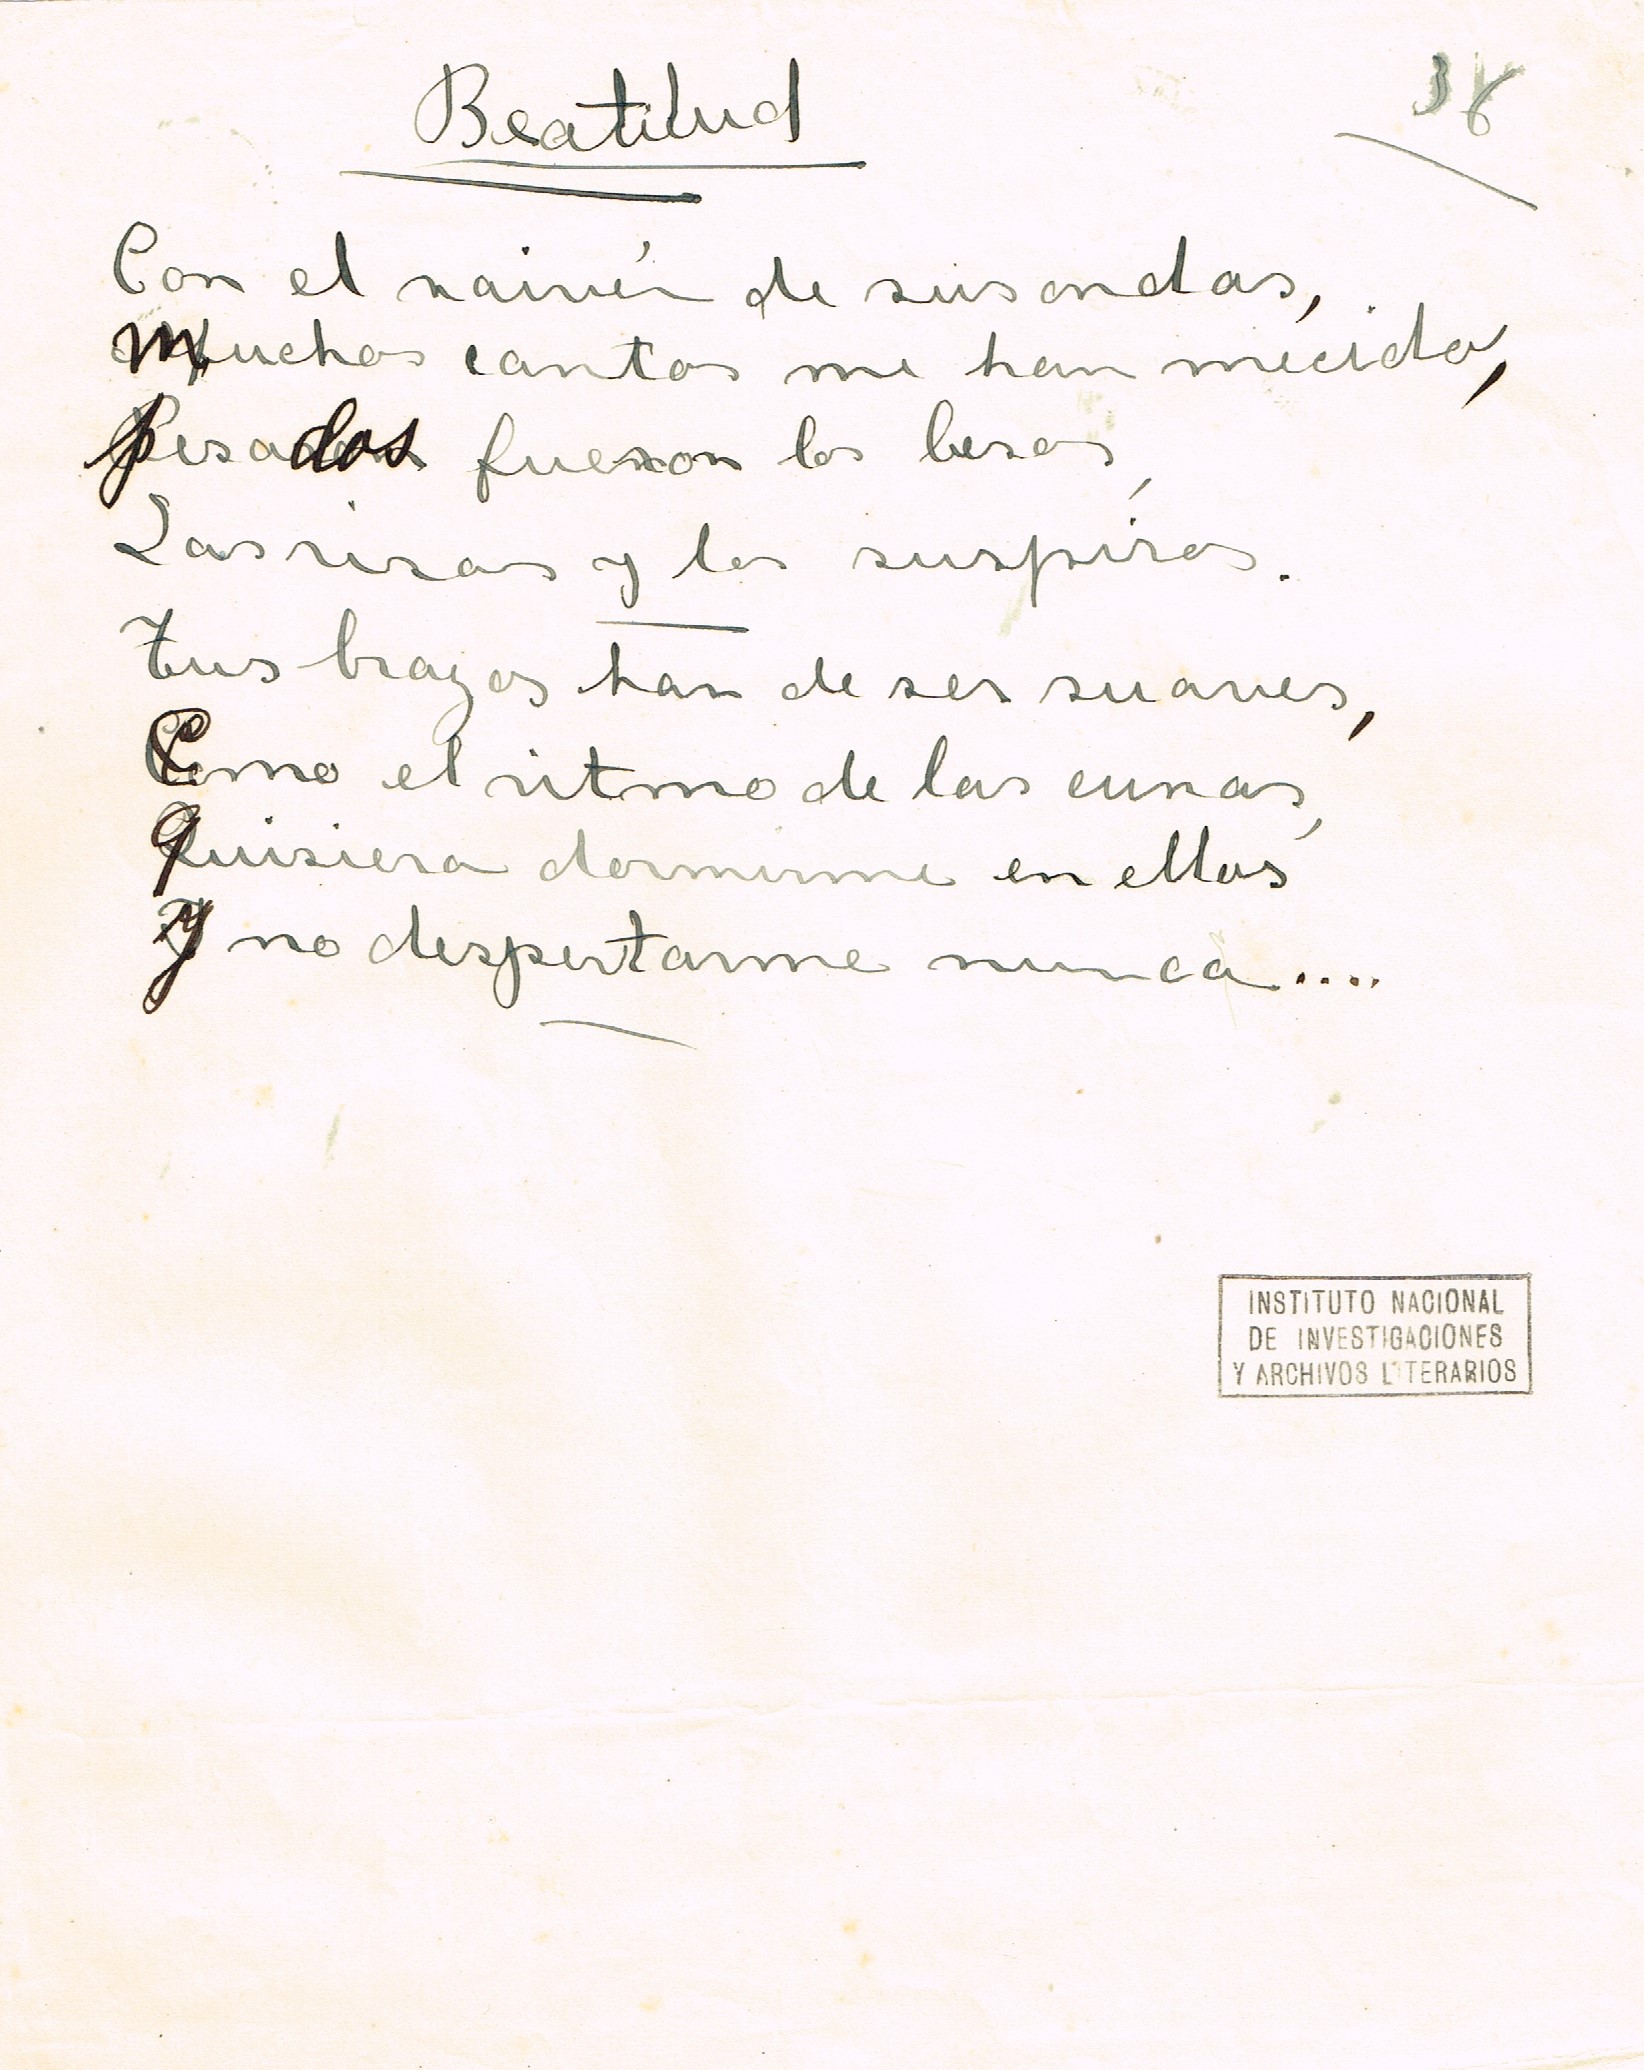 Beatitud
Con el vaivén de sus ondas,
muchos cantos me han mecido,
pesados fueron los besos,
Las risas y los suspiros.
Tus brazos han de ser suaves,
como el ritmo de las cunas,
quisiera dormirme en ellos
y no despertarme nunca....
INSTITUTO NACIONAL
DE INVESTIGACIONES
Y ARCHIVOS LITERARIOS